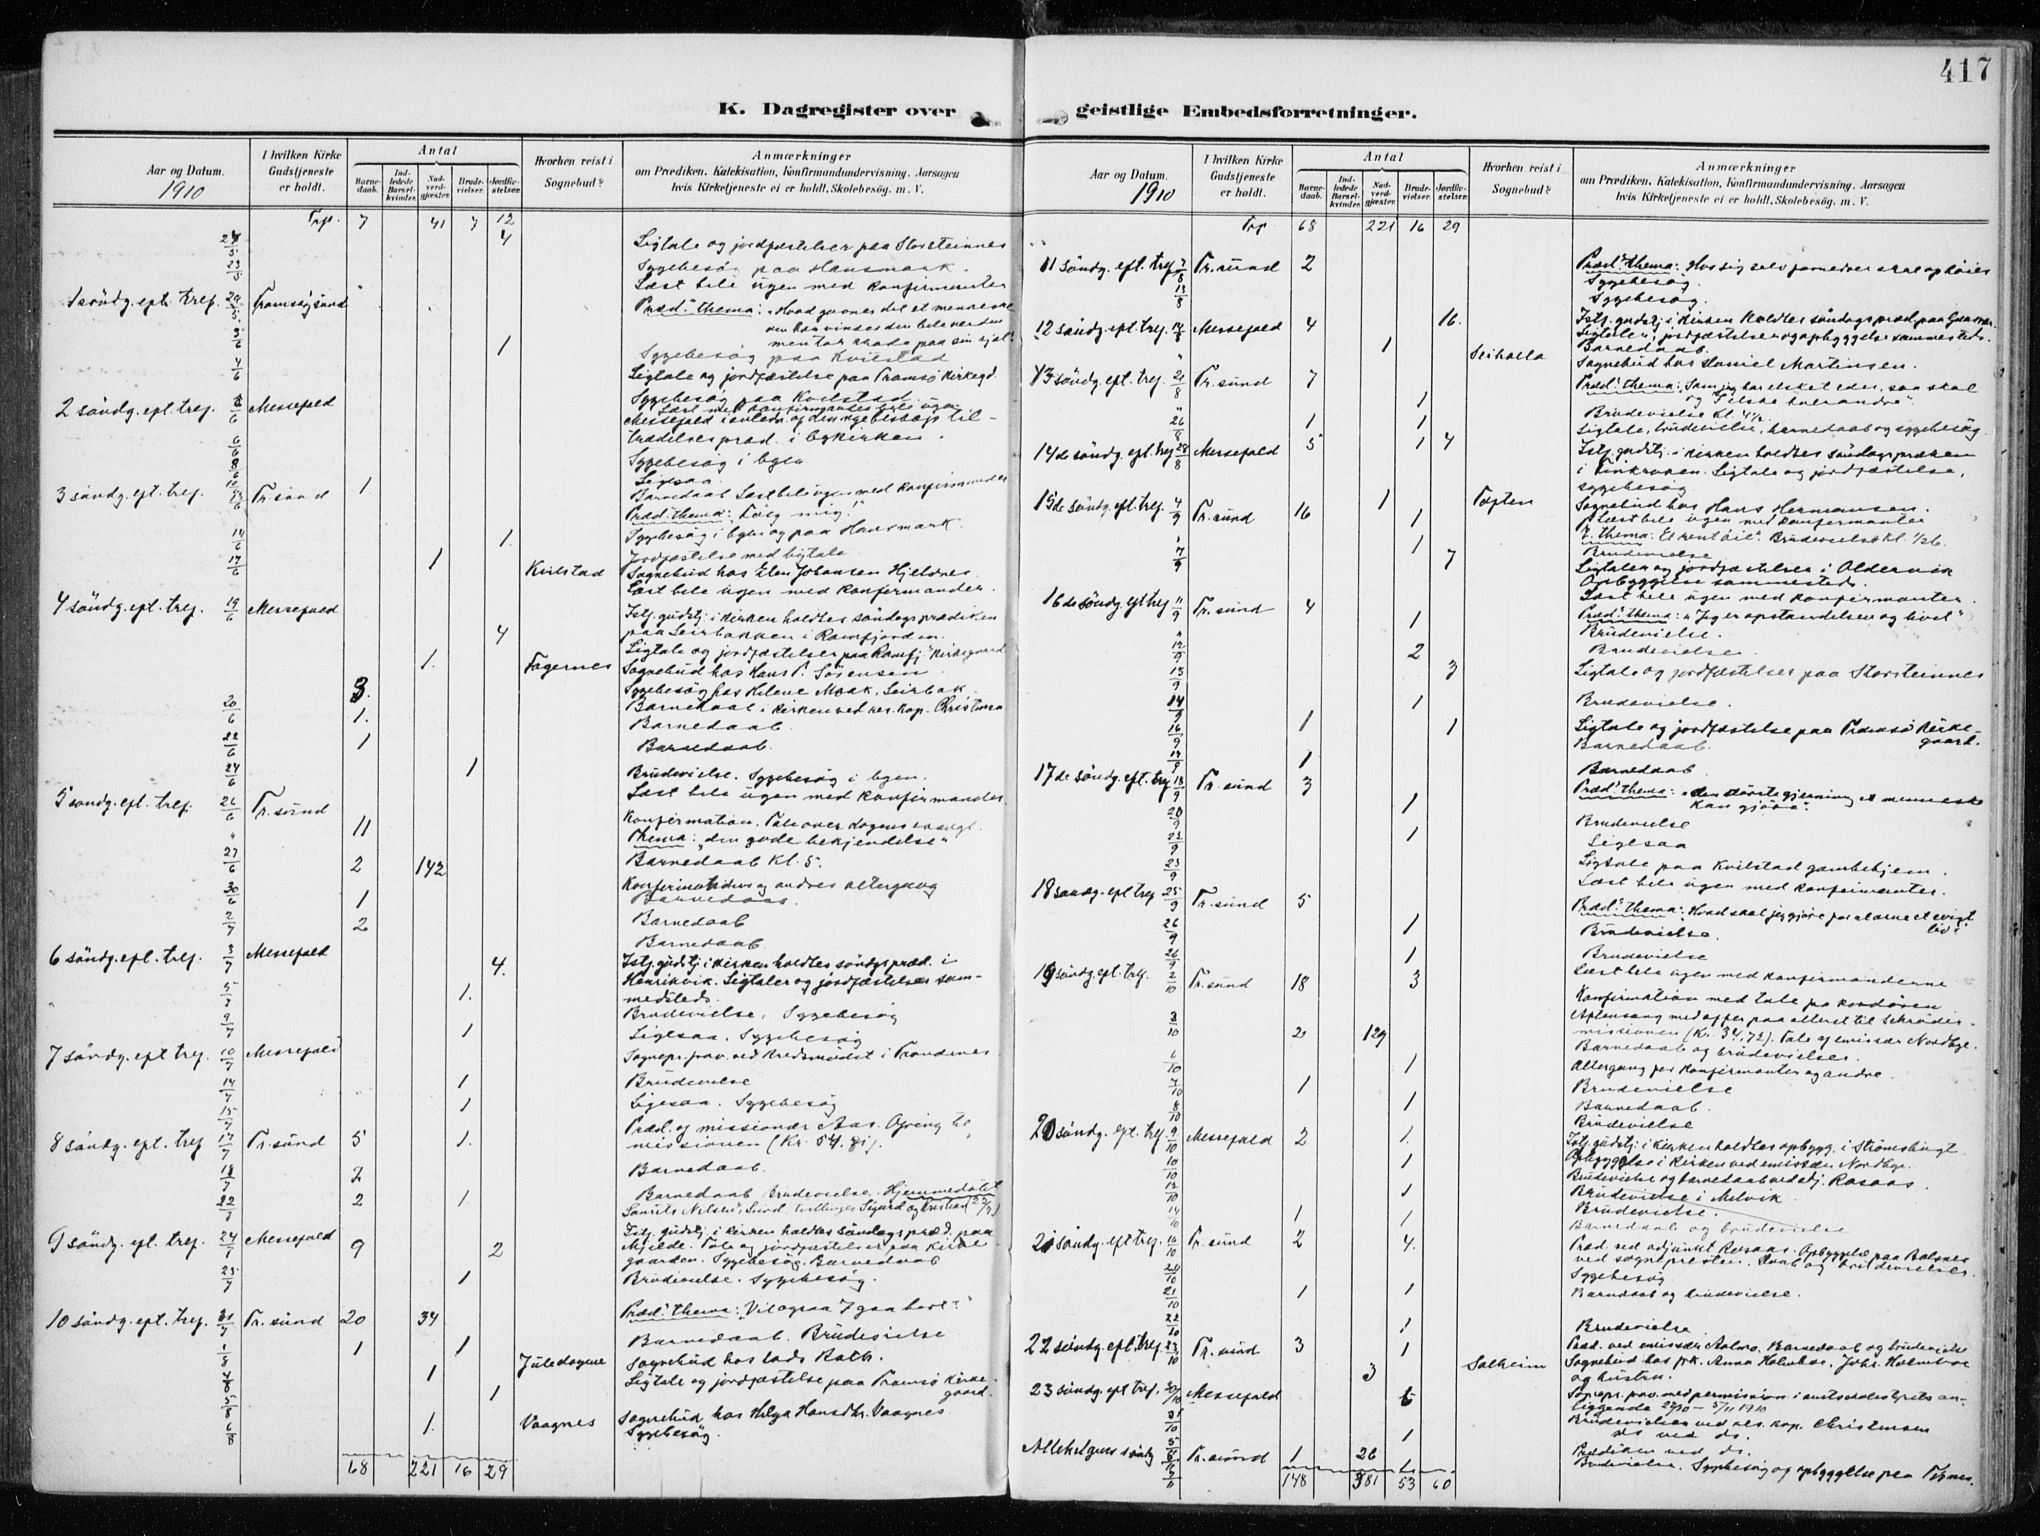 417
K. Dagregister over geistlige Embedsforretninger.
Aar og Datum. 1910
I hvilken Kirke Gudstjeneste er holdt.
Antal
Barne-daab.
Ind-ledede Barsel-kvinder.
Nad-verd-gjæster.
Brude-vielser.
Jordfæ-stelser.
Hvorhen reist i Sognebud?
Anmærkninger
om Prædiken. Katekisation, Konfirmandundervisning. Aarsagen
hvis Kirketjeneste ei er holdt. Skolebesög. m. V.
Trp. 7 41 7 12
4 Ligtale og jordfæstelser paa Storsteinnes
Sygebesøg paa Hansmark.
Læst hele ugen med konfirmanter
1 søndg. eft. tref. 29/5 Tromsøysund Præd. thema: Hvad gavner det et menneske
om han vinder den hele verden
men tar skade paa sin sjæl
Sygebesøg paa Kvilstad
1 Ligtale og jordfæstelse paa Tromsø Kirkegd.
Sygebesøg paa Kvilstad.
2 søndg. eft. tref. Messefald
trædelsespræd. i bykirken.
6/6 Sygebesøg i byen
8/6 Ligesaa.
3 søndg. eft. tref. Tr.sund 1 Barnedaab Læst hele ugen med konfirmander
Præd. thema: Følg mig!
14/6 Sygebesøg i byen og paa Hansmark.
1. Jordfæstelse med ligtale
17/6 1 Kvilstad Sognebud hos Elen Johansen Hjeldnes
Læst hele ugen med konfirmander.
4 søndg. eft. tref. 19/6 Messefald Istf. gudstj. i kirken holdtes søndags prædiken
paa Leirbakken i Ramfjorden.
4 Ligtale og jordfæstelser paa Ramfj. Kirkegaard
1. Fagernes Sognebud hos Hans P. Sørensen
Sygebesøg hos Helene Moak, Leirbak.
3. Barnedaab i kirken ved res. kap. Christensen
20/6 1. Barnedaab
22/6 1 Barnedaab.
24/6 1 Brudevielse. Sygebesøg i byen.
Læst hele ugen med konfirmander.
5 søndg. eft. tref. 26/6 Tr.sund Konfirmation. Tale over dagens evangl.
Thema: "den gode bekjendelse"
" 11 Barnedaab kl. 5.
27/6 2 142 Konfirmandens og andres altergang
Barnedaab.
30/6 1 Barnedaab
2/7 2 Barnedaab.
6 søndg. eft. tref. 3/7 Messefald 4. Istf. gudstj. i kirken holdtes søndgs præd. i
Henrikvik. Ligtaler og jordfæstelser sam-
medsteds.
5/7 1. Brudevielse, Sygebesøg
9/7 1 Ligesaa. Sygebesøg
7 søndg. eft tref 10/7 Messefald Sognepr. frav. ved kredsmødet i Trondenes
1 Brudevielse
14/7 1 Ligesaa. Sygebesøg
15/7 Præd. af missionær Aas. Ofring til
8 søndg. eft. tref 17/7 Tr.sund 5 1. missionen (Kr. 54.81).
18/7 2 Barnedaab.
22/7 2 1 Barnedaab Brudevielse. Hjemmedøbt
9 søndg. ef. tref. 24/7 Messefald 9 2 Istf. gudstj. i kirken holdtes søndags præd. paa
Mjelde. Tale og jordfæstelser paa kirke
gaarden. Sygebesøg. Barnedaab
25/7 1 Brudevielse. Sygebesøg.
10 søndg. eft. tref. 31/7 Tr.sund 20 34 Præd. thema: Vil ogsaa I gaa bort?
1 1 Barnedaab. Brudevielse
1/8 1 Juledagene Sognebud hos lods Rath.
4/8 1 Ligtale og jordfæstelse paa Tromsø Kirke-
gaard.
5/8 1. Vaagnes Sognebud hos Helga Hansdtr. Vaagnes
6/8 Sygebesøg.
68 221 16 29
Aar og Datum. 1910
I hvilken Kirke Gudstjeneste er holdt.
Antal
Barne-daab.
Ind-ledede Barsel-kvinder.
Nad-verd-gjæster.
Brude-vielser.
Jordfæ-stelser.
Hvorhen reist i Sognebud?
Anmærkninger
om Prædiken. Katekisation, Konfirmandundervisning. Aarsagen
hvis Kirketjeneste ei er holdt. Skolebesög. m. V.
Trp 68 221 16 29
11 søndg. eft. tref 7/8 Tr.sund 2 Præd. thema: Hvo sig selv fornedrer skal ophøies
Sygebesøg.
13/8 Sygebesøg.
12 søndg. eft. tref. 14/8 Messefald 4 16. Istf. gudstj. i kirken holdtes søndags præd. paa
Ligtaler, jordfæstelser og opbyggelse sammesteds.
Barnedaab.
" 1 Sognebud hos Daniel Martinsen.
13 søndg. eft. tref. 21/8 Tr.sund 7 Præd. thema: Som jeg har elsket eder, saa skal
og I elske hverandre".
" 1 Brudevielse kl. 4½
26/8 1 1 Ligtale, brudevielse, barnedaab og sygebesøg
14de søndg. eft. tref 28/8 Messefald 5 1 4 Istf. gudstj. i kirken holdtes søndagsprædiken
i Finkroken. Ligtale og jordfæstelse,
sygebesøg
15de søndg. eft. tref. 4/9 Tr.sund 16 1 Toften Sognebud hos Hans Hermansen.
Læst hele ugen med konfirmanter
1 Brudevielse kl. ½6.
1 Brudevielse
7/9 7 Ligtaler og jordfæstelser i Oldervik
Opbyggelse sammesteds.
Læst hele ugen med konfirmanter.
16de søndg. eft tref 11/9 Tr.sund 4 Præd. thema: "Jeg er opstandelsen og livet"
" 1 Brudevielse.
12/9 2 Brudevielse
13/9 3 Ligtale og jordfæstelser paa Storsteinnes
14/9 1 Brudevielse.
16/9 1 1 Ligtale og jordfæstelse paa Tromsø Kirke-
gaard.
Barnedaab.
17/9 1 Barnedaab
17de søndg. eft. tref 18/9 Tr.sund 3 Præd. thema: "den største gjerning et menneske
kan gjøre".
20/9 1 Brudevielse
1 Ligesaa
23/9 Ligtale paa Kvilstad gamlehjem.
Læst hele ugen med konfirmanter.
18 søndg. eft tref 25/9 Tr.sund 5 Præd. thema: Hvad skal jeg gjøre for at arve et evigt
liv?
26/9 1 Brudevielse.
1 Brudevielse
Læst hele ugen med konfirmanderne
19 søndg. eft. tref. 2/10 Tr.sund 18 3 Konfirmation med tale fra kordøren
Aftensang med offer paa alteret til
Tale af emissær Nordbye.
Barnedaab og brudevielser.
3/10 2 129 Altergang for konfirmanter og andre.
6/10 1 Brudevielse
7/10 1 Barnedaab.
8/10 1 Brudevielse
20 søndg. eft. tref. 9/10 Messefald 2 1. Istf. gudstj. i kirken holdtes opbygg. i Strømsbugt
Opbyggelse i kirken ved emissær Nordbye.
10/10 1 Brudevielse og barnedaab ved adj. Rosaas.
12/10 1 Brudevielse i Melvik.
Brudevielse.
14/10 1 1 Barnedaab og brudevielse
21 søndg. eft tref. 16/10 Tr.sund 2 4. Præd. ved adjunkt Rosaas. Opbyggelse paa Balsnes
ved sognepresten. Daab og brudevielser.
20/10 Sygebesøg
21/10 1 1 Barnedaab og brudevielse.
22/10 1 Brudevielse
22 søndg. eft. tref. 23/10 Tr.sund 3 1 Præd. ved emissær Barnedaab og brudevielse
3 Solheim Sognebud hos frk. Anna Holmboe, Johs. Holmboe
og hustru.
23 søndg. eft tref. 30/10 Messefald 6 Sognepr. frav. med permission i
liggende 5/11 1910
31/10 1 Brudevielser ved res. kap. Christensen
ds ved ds.
Allehelgens søndg Tr.sund 1 26 1 Prædiken ved ds.
Brudevielse. Sygebesøg og opbyggelse paa
148 381 53 60